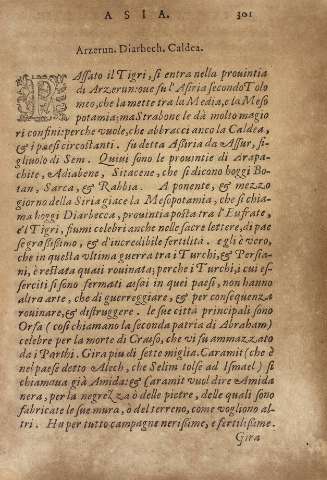 ASIA. 301
Arzerun. Diarbech. Caldea.
PAssato il Tigri, si entra nella prouintia
di Arzerun: oue fu l'Asiria secondo Tolo
meo, che la mette tra la Media, e la Meso
potamia; ma Strabone le dà molto magio
ri confini: perche vuole, che abbracci anco la Caldea,
& i paesi circostanti. fu detta Asiria da Assur, fi-
gliuolo di Sem. Quiui sono le prouintie di Arapa-
chite, Adiabene, Sitacene, che si dicono hoggi Bo-
tan, Sarca, & Rabbia. A ponente, & mezzo
giorno della Siria giace la Mesopotamia, che si chia
ma hoggi Diarbecca, prouintia posta tra l'Eufrate,
e'l Tigri, fiumi celebri anche nelle sacre lettere, di pae
se grassissimo, & d'incredibile fertilità. egli è vero,
che in questa vltima guerra tra i Turchi, & Persia-
ni, è restata quasi rouinata; perche i Turchi, i cui es-
serciti si sono fermati assai in quei paesi, non hanno
altra arte, che di guerreggiare, & per consequenza
rouinare, & distruggere. le sue città principali sono
Orfa (così chiamano la seconda patria di Abraham)
celebre per la morte di Crasso, che vi fu ammazzato
da i Parthi. Gira piu di sette miglia. Caramit (che è
nel paese detto Alech, che Selim tolse ad Ismael) si
chiamaua già Amida: & Caramit vuol dire Amida
nera, per la negrezza ò delle pietre, delle quali sono
fabricate le sue mura, ò del terreno, come vogliono al-
tri. Ha per tutto campagne nerissime, e fertilissime.
Gira